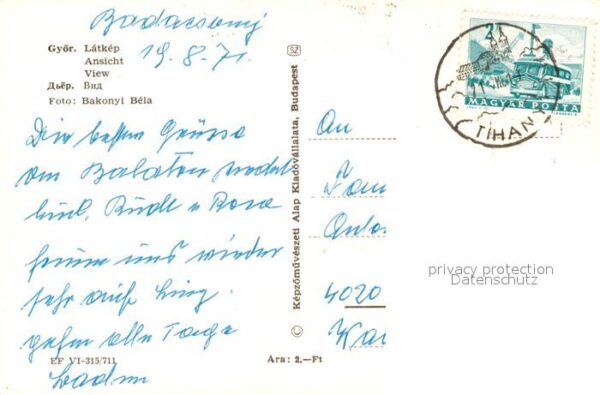 Badacsony
19.8.71.
Győr. Látkép
Ansicht
View
Дьёр. Вид
Foto: Bakonyi Béla
Die besten Grüsse
vom Balaton
Rudl u Rosa
freuen uns wieder
sehr auf Linz.
gehen alle Tage
baden
EF VI-315/711
Ára: 2.-Ft
© Képzőművészeti Alap Kiadóvállalata, Budapest
SZ
An
Fam
4020
2 Ft
MAGYAR POSTA
TIHANY
privacy protection
Datenschutz